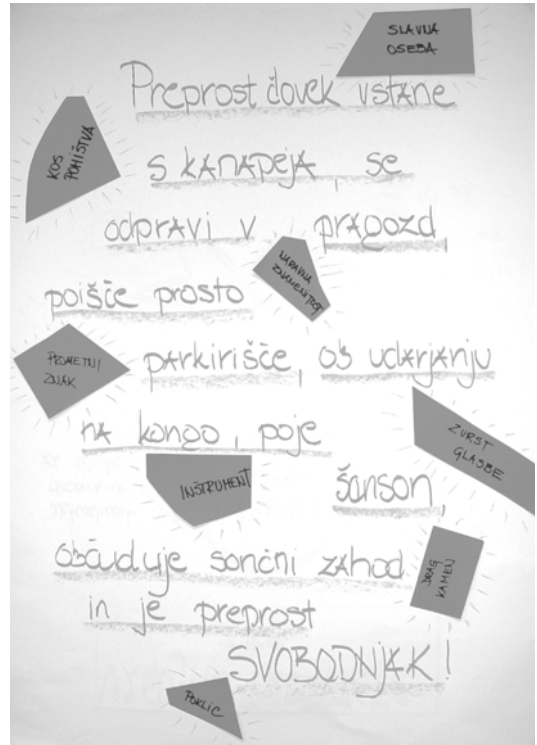 SLAVNA
OSEBA
Preprost človek vstane
KOS
POHIŠTVA
s kanapeja, se
odpravi v pragozd,
NARAVNA
ZNAMENITOST
poišče prosto
PROMETNI
ZNAK
parkirišče, ob udarjanju
na kongo, poje
ZVRST
GLASBE
INŠTRUMENT
šanson,
občuduje sončni zahod
DRAG
KAMEN
in je preprost
SVOBODNJAK!
POKLIC